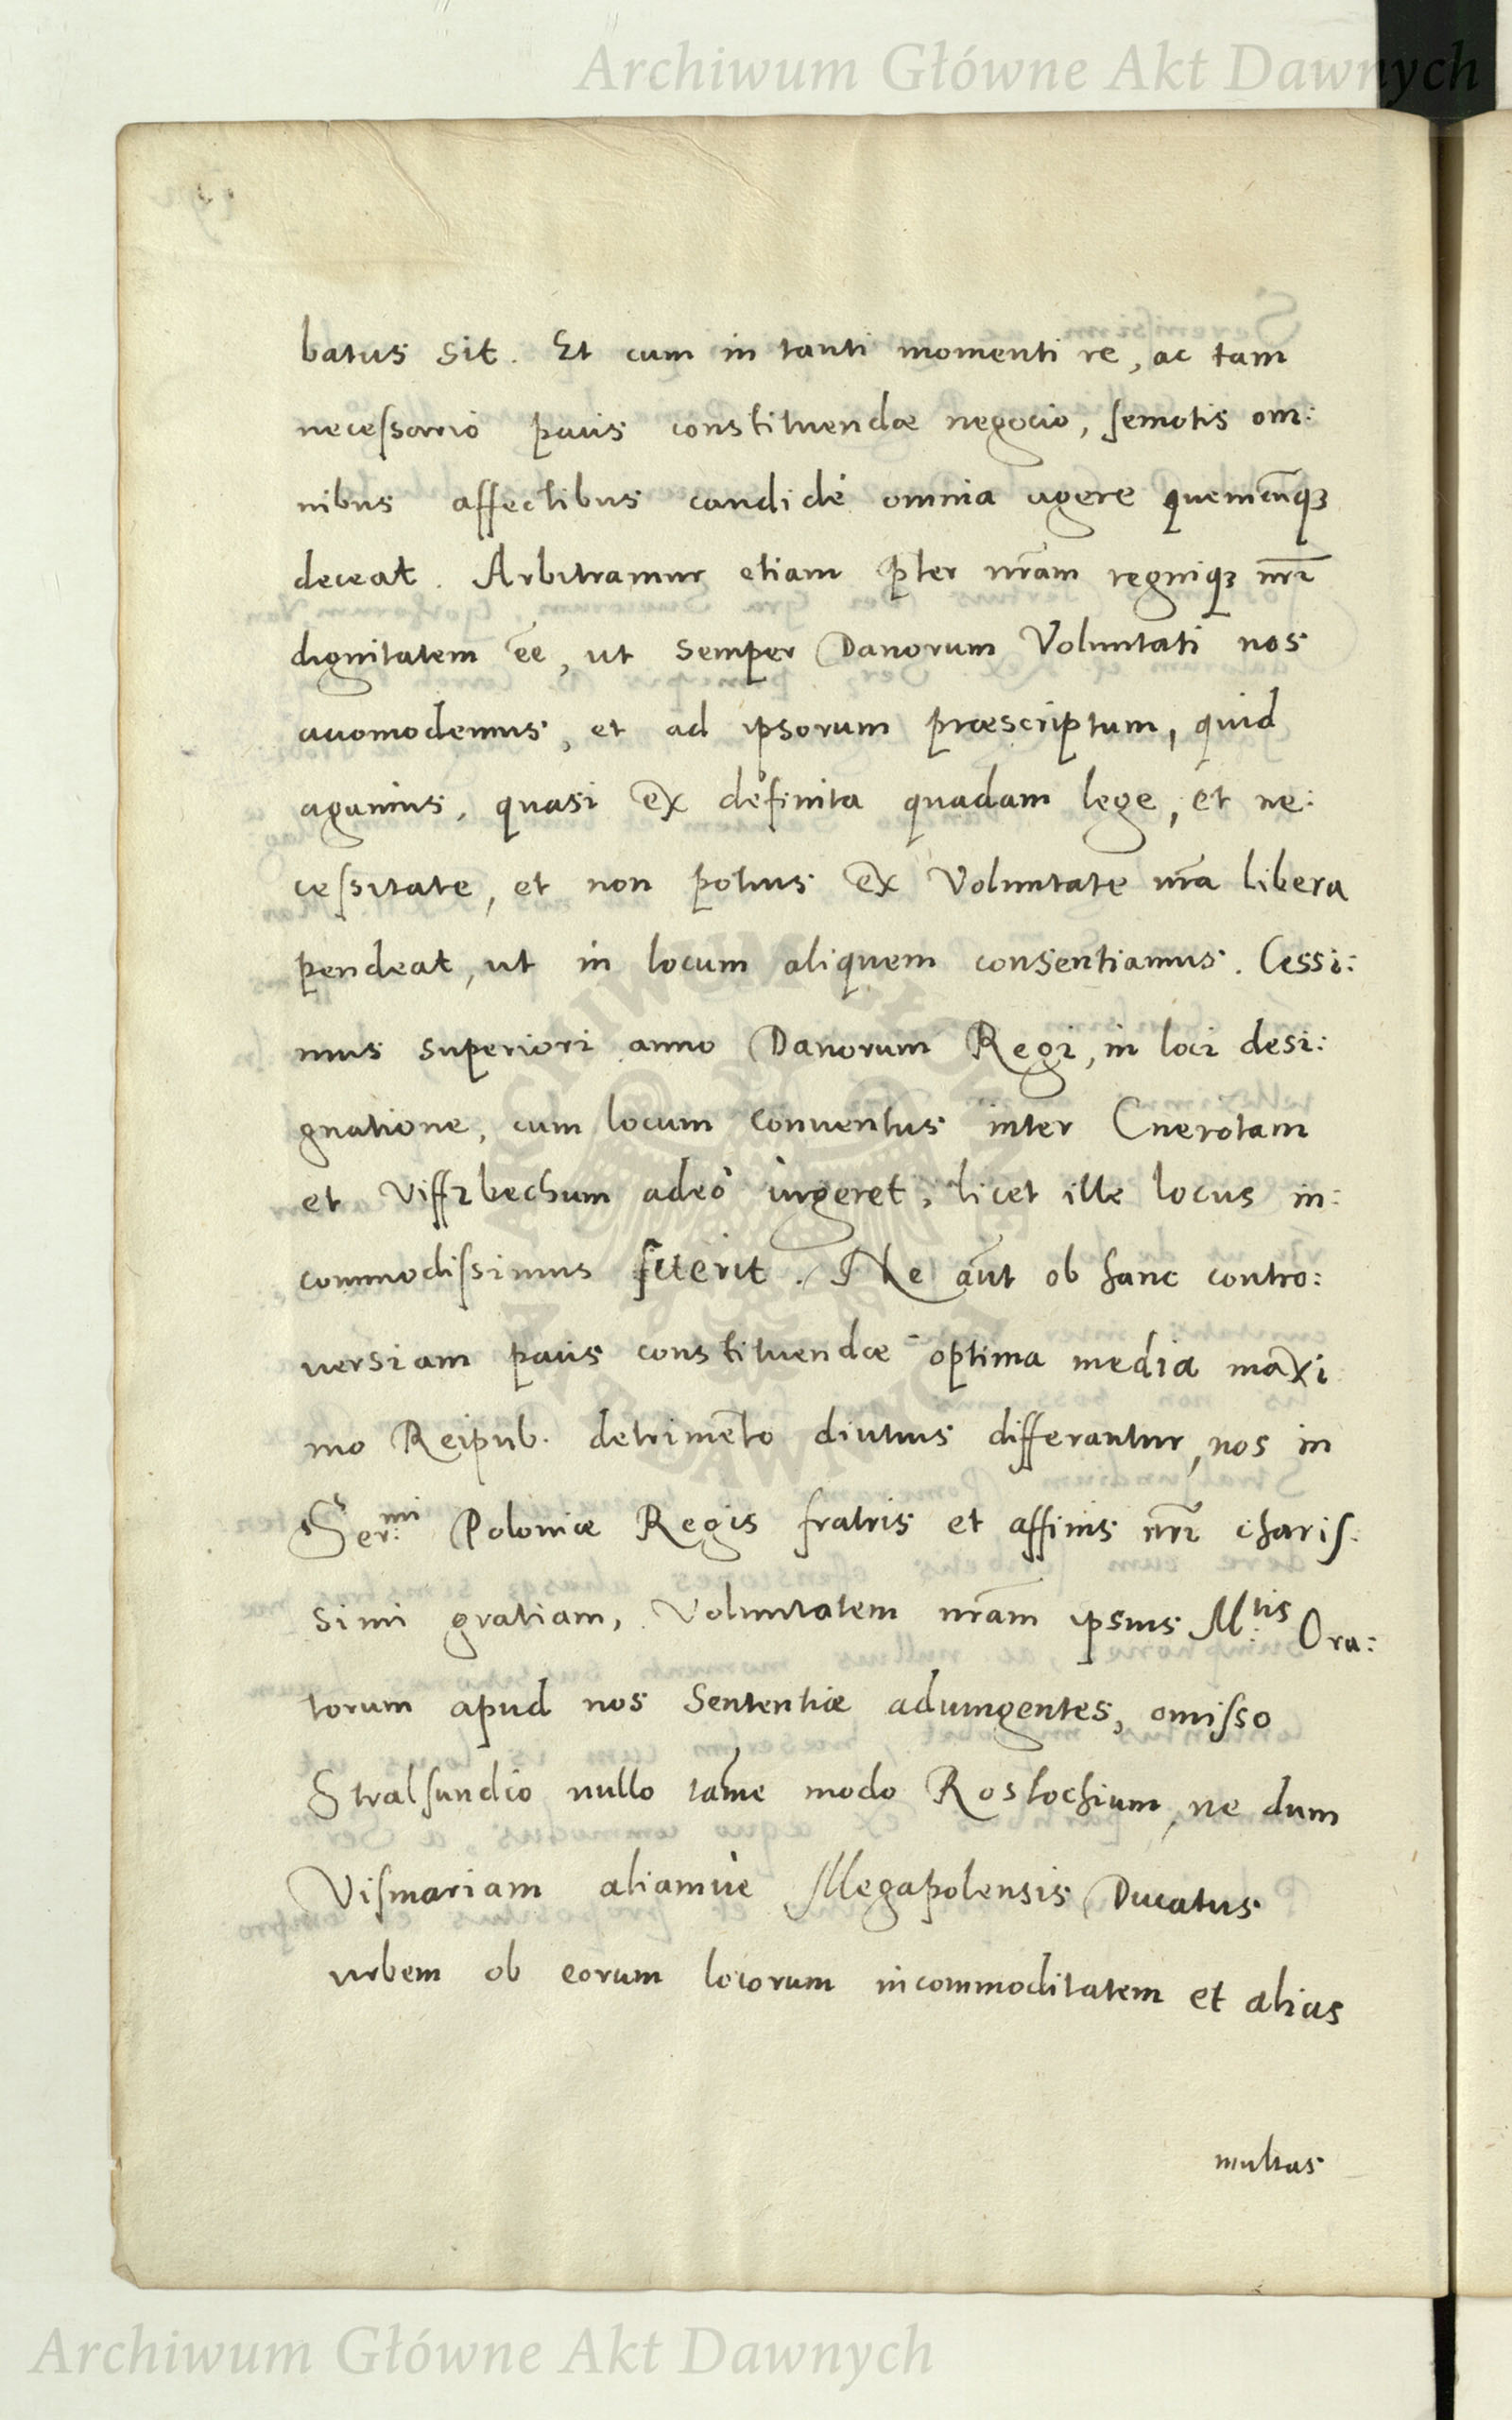 Archiwum Główne Akt Dawnych
batus sit. Et cum in tanti momenti re, ac tam
necessario pacis constituendæ negocio, semotis om:
nibus affectibus candidè omnia agere quemcūq3
deceat. Arbitramur etiam p̄ter nr̄am regniq3 nr̄i
dignitatem ēē, ut semper Danorum Voluntati nos
accomodemus, et ad ipsorum præscriptum, quid
agamus, quasi ex definita quadam lege, et ne:
cessitate, et non potius ex Voluntate nr̄a libera
pendeat, ut in locum aliquem consentiamus. Cessi:
mus superiori anno Danorum Regi, in loci desi:
gnatione, cum locum conventus inter Cnerotam
et Viffzbechum adeò urgeret, licet ille locus in:
commodissimus fuerit. Ne aūt ob hanc contro:
versiam pacis constituendæ optima media maxi
mo Reipub. detrimēto diutius differantur, nos in
Ser:mi Poloniæ Regis fratris et affinis nr̄i charis:
simi gratiam, Voluntatem nr̄am ipsius M:tis Ora:
torum apud nos Sententiæ adiungentes, omisso
Stralsundio nullo tamē modo Rostochium, ne dum
Vismariam aliamve Megapolensis Ducatus
urbem ob eorum locorum incommoditatem et alias
multas
Archiwum Główne Akt Dawnych